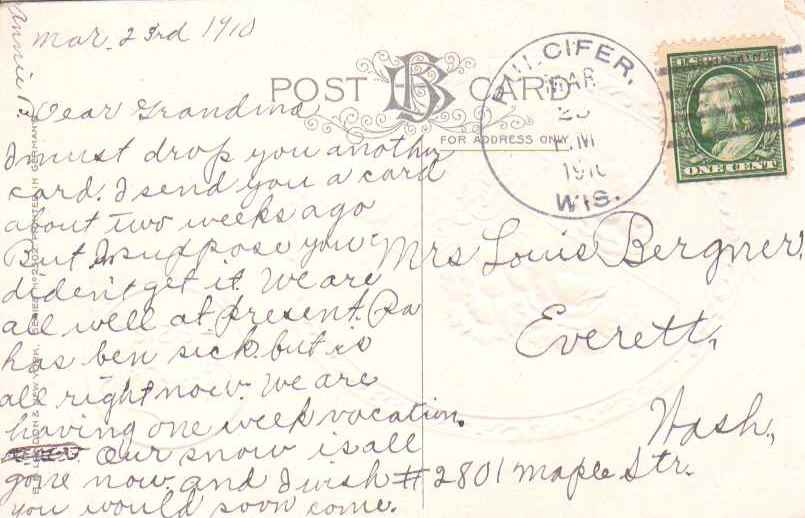 Mar. 23rd 1910
Annie B.
POST CARD
FOR ADDRESS ONLY
PULCIFER,
MAR
1910
WIS.
U.S. POSTAGE
ONE CENT
Dear Grandma
I must drop you another
card. I send you a card
about two weeks ago
But I suppose you
diden't get it. We are
all well at present. Pa
has ben sick but is
all right now. We are
having one week vocation.
our snow is all
gone now and I wish
you would soon come.
Mrs Louis Bergner,
Everett,
Wash,
# 2801 Maple Str.
LONDON & NEW YORK. SERIES No 2502 PRINTED IN GERMANY